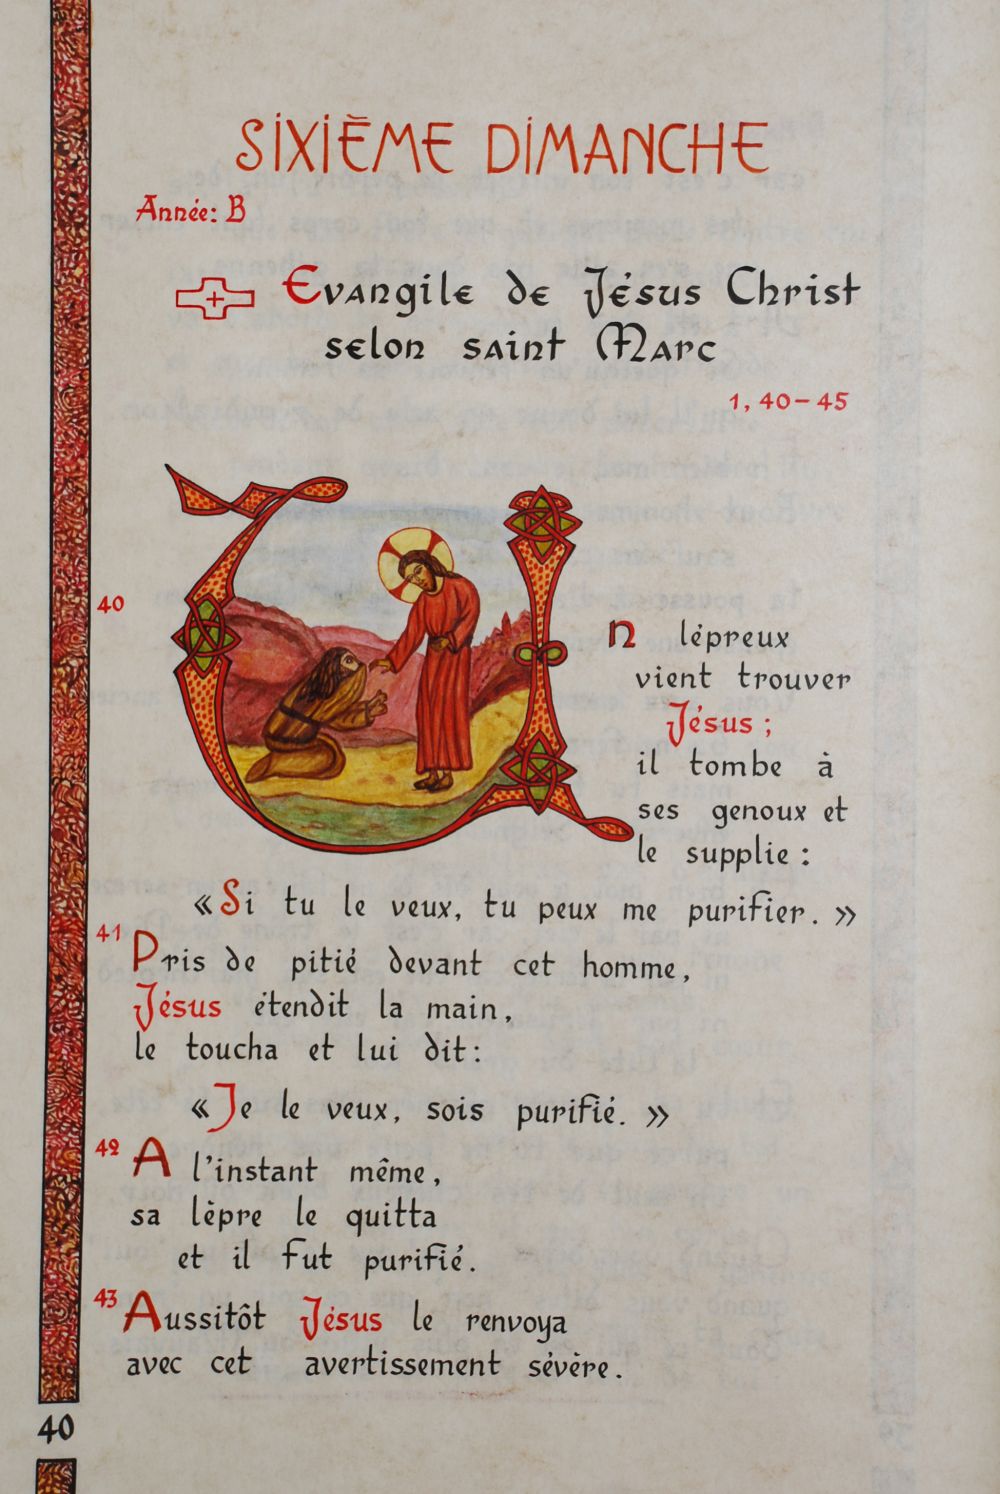 SIXIÈME DIMANCHE
Année: B
Evangile de Jésus Christ
selon saint Marc
1, 40-45
40
Un lépreux
vient trouver
Jésus ;
il tombe à
ses genoux et
le supplie :
« Si tu le veux, tu peux me purifier. »
41
Pris de pitié devant cet homme,
Jésus étendit la main,
le toucha et lui dit :
« Je le veux, sois purifié. »
42
A l'instant même,
sa lèpre le quitta
et il fut purifié.
43
Aussitôt Jésus le renvoya
avec cet avertissement sévère.
40